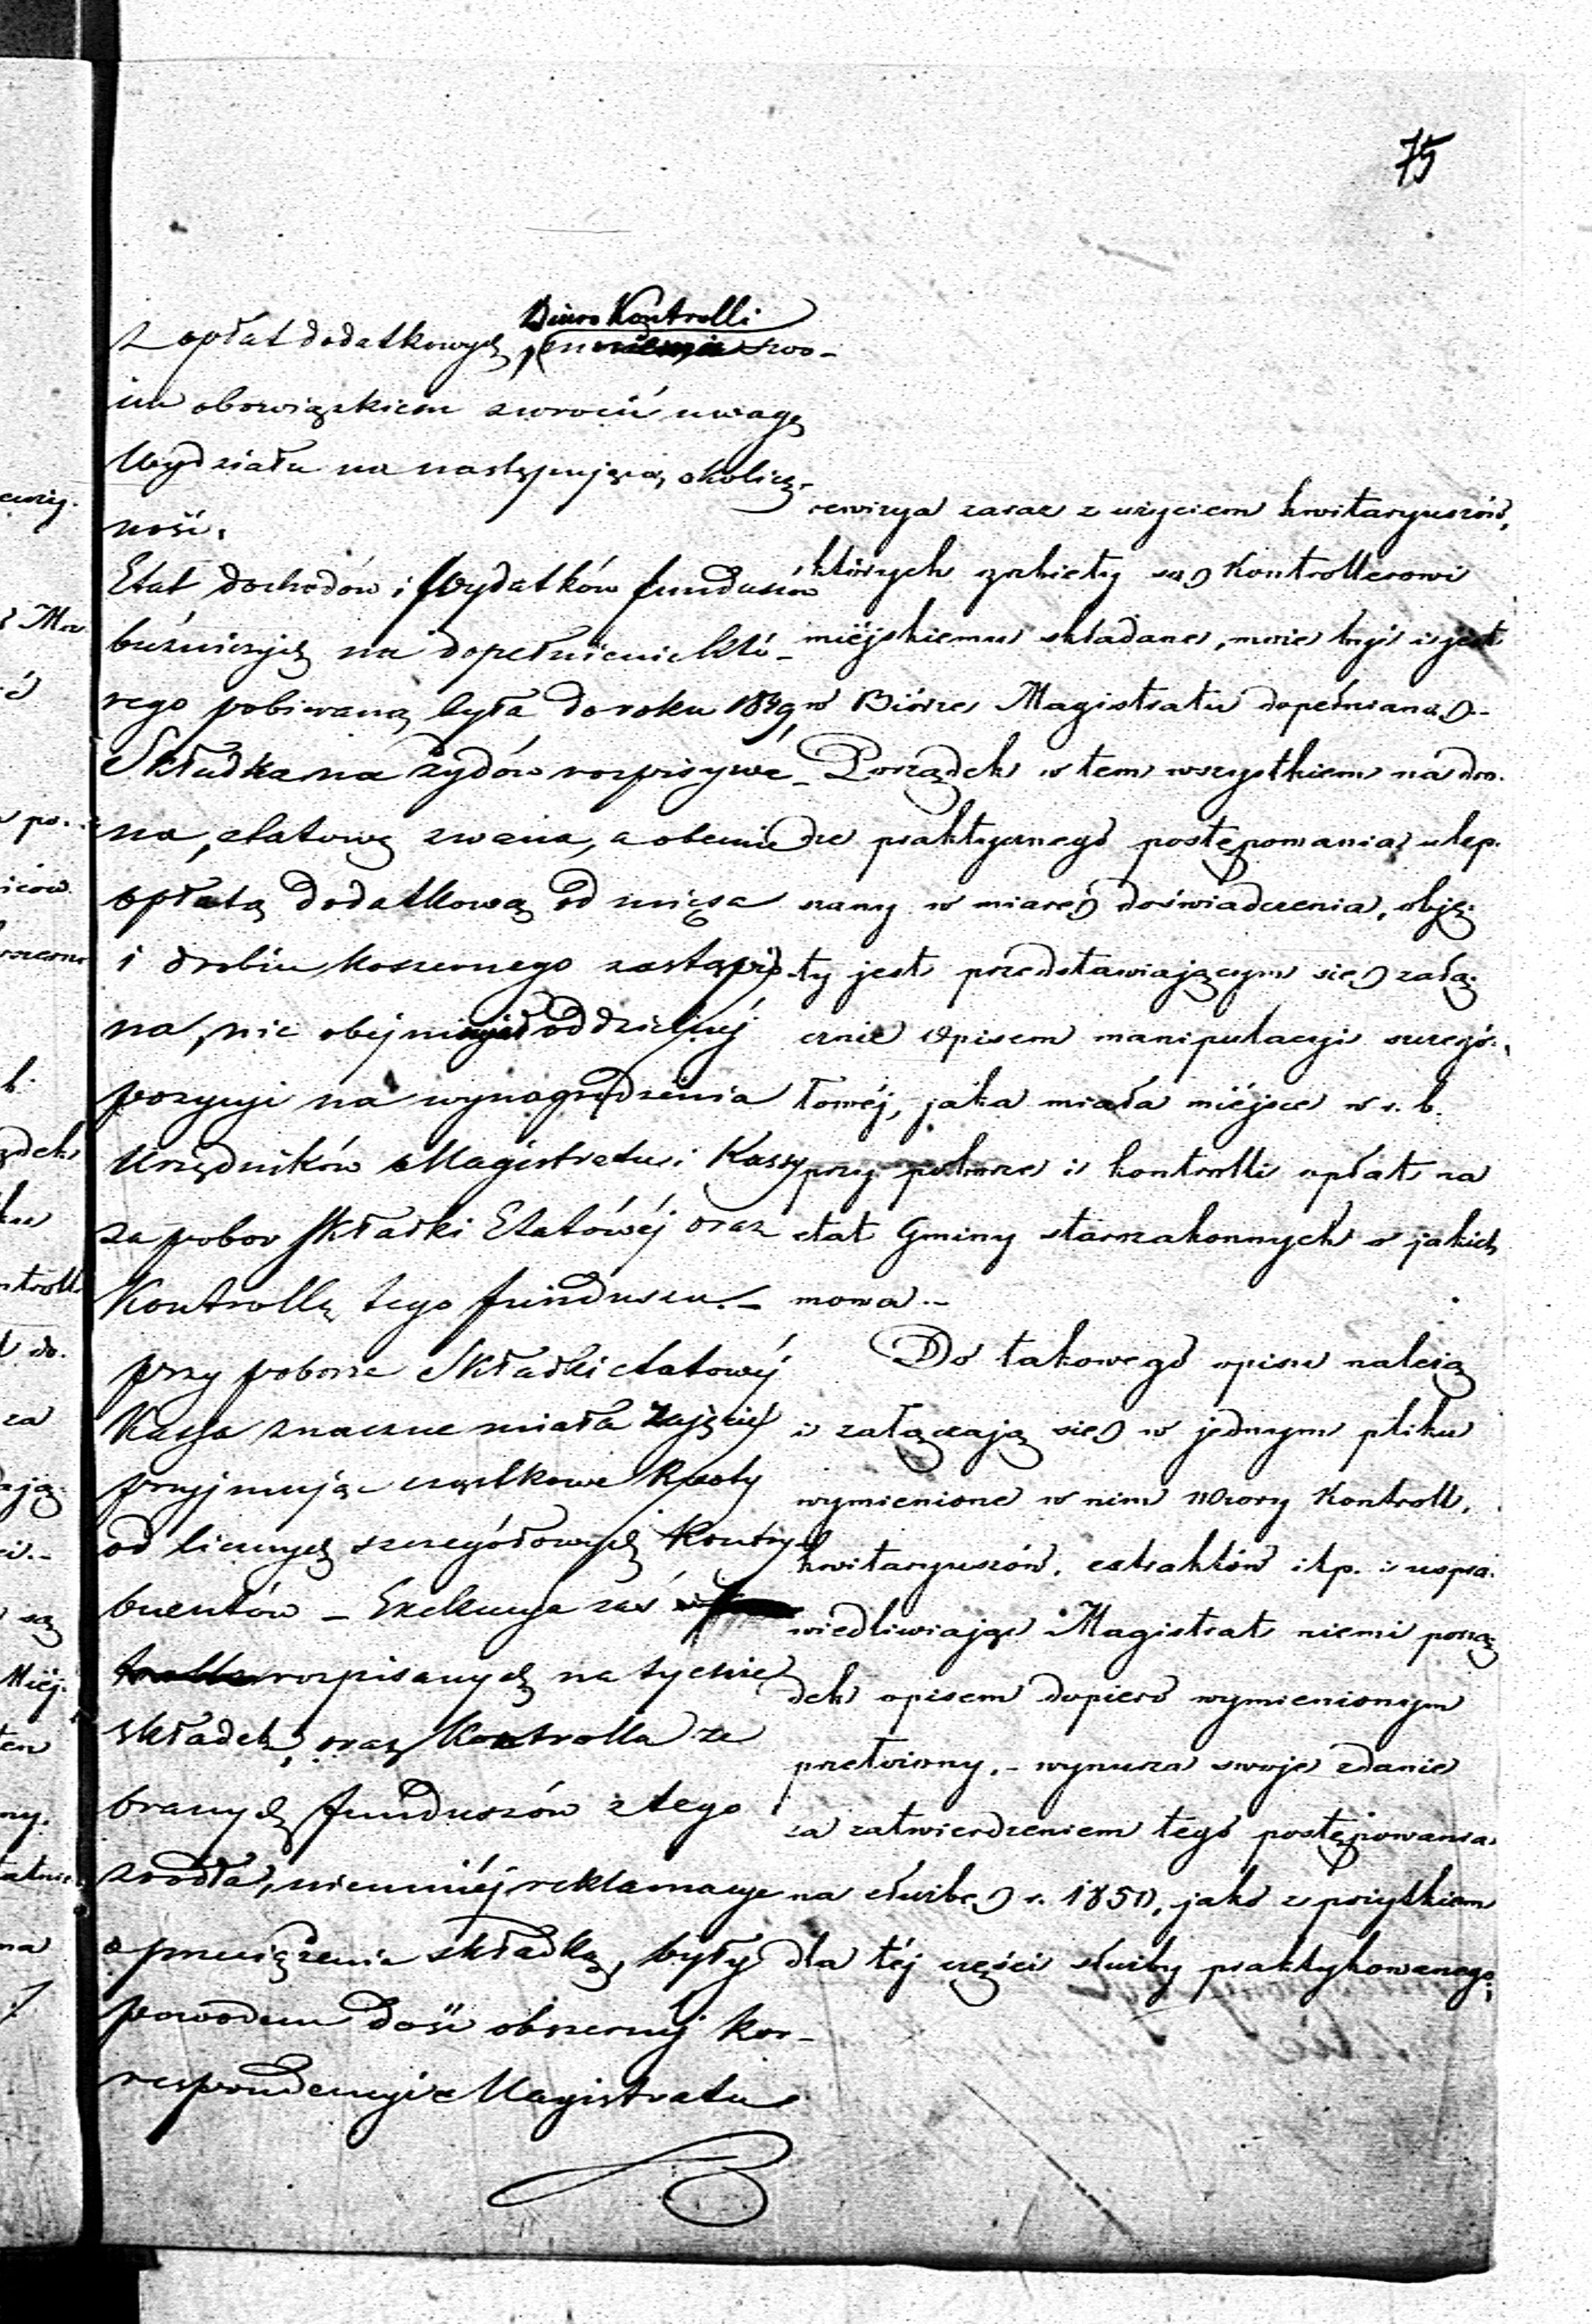 75
Biuro Kontrolli
z opłat dodatkowych, swo-
im obowiązkiem zwrócić uwagę
Wydziału na następującą okolicz-
ność.
Etat dochodów i Wydatków funduszów
bużniczych na dopełnienie któ-
rego pobierana była do roku 1849,
Składka na żydów rozpisywa-
na, etatową zwana, a obecnie
opłatą dodatkową od mięsa
i drobiu koszernego zastąpio-
na, nie obejmuje oddzielnej
pozycyi na wynagrodzenia
Urzędników Magistratu i Kassy
za pobor Składki Etatówéj oraz
Kontrollę tego funduszu. –
przy poborze Składki etatowéj
Kassa znaczne miała zajęcie
przyjmując cząstkowe Kwoty
od licznych szczegółowych Kontry-
buentów – Exekucya zaś
rozpisanych na tychże
składek, oraz Kontrolla ze
branych funduszów z tego
zrodła, niemniéj reklamacye
o przeciążenie składką, były
powodem dość obszernéj kor-
respondencyi Magistratu
rewizya zaraz z użyciem kwitaryuszów,
których grzbiety są Kontrollerowi
miéjskiemu składane, może być i jest
w Biórze Magistratu dopełnianą. –
Porządek w tem wszystkiem na dro-
dze praktycznego postępowania ulep-
szany w miarę doświadczenia, obję-
ty jest przedstawiającym się załą-
cznie Opisem manipulacyi szczegó-
łowéj, jaka miała miéjsce w r. b.
przy poborze i kontrolli opłat na
etat Gminy starozakonnych o jakich
mowa. –
Do takowego opisu należą
i załączają się w jednym pliku
wymienione w nim Wzory Kontroll,
kwitaryuszów, extraktów itp. i uspra-
wiedliwiając Magistrat niemi porzą
dek opisem dopiero wymienionym
przetoczony, – wynurza swoje zdanie
za zatwierdzeniem tego postępowania
na służbę r. 1850, jako z pożytkiem
dla téj części służby praktykowanego,